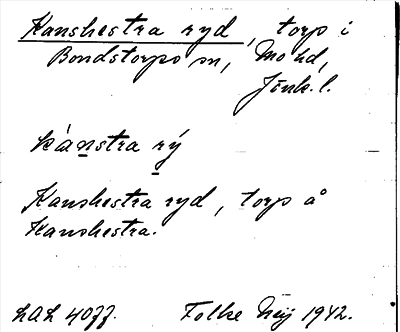 Kanshestra ryd, torp i
Bondstorps sn, Mo hd,
Jönk. l.
kánstra rý
Kanshestra ryd, torp å
Kanshestra.
Folke Näj 1942.